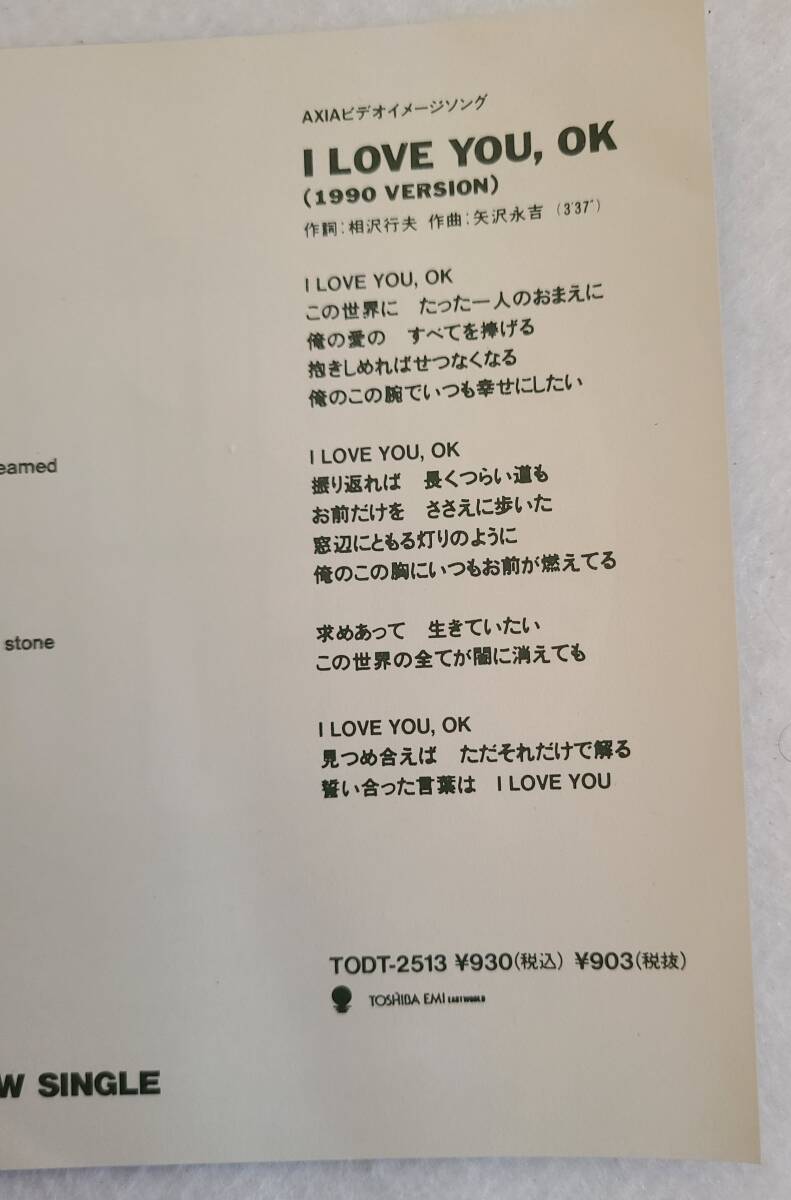 AXIAビデオイメージソング
I LOVE YOU, OK
(1990 VERSION)
作詞:相沢行夫 作曲:矢沢永吉 (3'37")
I LOVE YOU, OK
この世界に たった一人のおまえに
俺の愛の すべてを捧げる
抱きしめればせつなくなる
俺のこの腕でいつも幸せにしたい
I LOVE YOU, OK
振り返れば 長くつらい道も
お前だけを ささえに歩いた
窓辺にともる灯りのように
俺のこの胸にいつもお前が燃えてる
求めあって 生きていたい
この世界の全てが闇に消えても
I LOVE YOU, OK
見つめ合えば ただそれだけで解る
誓い合った言葉は I LOVE YOU
eamed
stone
TODT-2513 ¥930(税込) ¥903(税抜)
TOSHIBA EMI LAST WORLD
W SINGLE